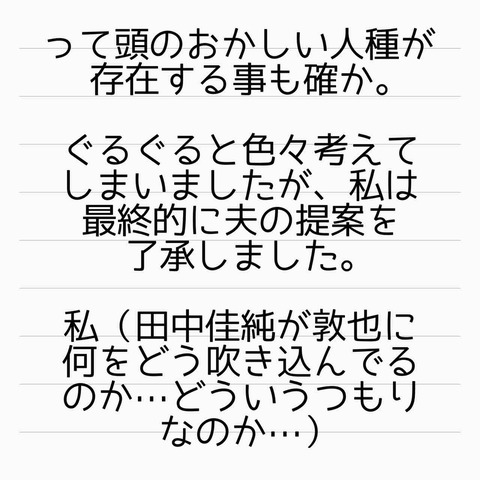 って頭のおかしい人種が
存在する事も確か。
ぐるぐると色々考えて
しまいましたが、私は
最終的に夫の提案を
了承しました。
私（田中佳純が敦也に
何をどう吹き込んでる
のか…どういうつもり
なのか…）